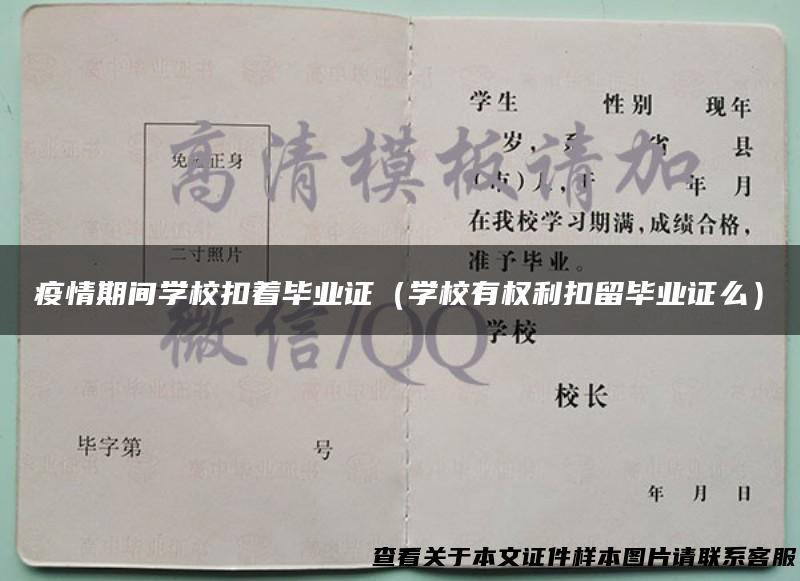 学生 性别 现年
岁, 系 省 县
(市)人, 于 年 月
在我校学习期满,成绩合格,
准予毕业。
学校
校长
年 月 日
免冠正身
二寸照片
毕字第 号
高清模板请加
微信/QQ
疫情期间学校扣着毕业证(学校有权利扣留毕业证么)
查看关于本文证件样本图片请联系客服